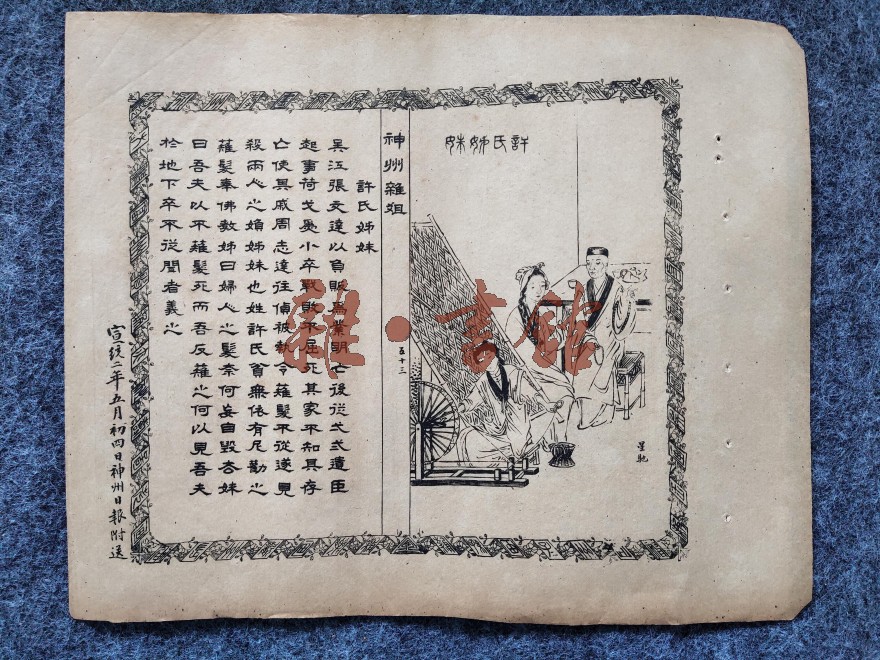 許氏姊妹
星馳
神州雜俎
五十三
許氏姊妹
吳江張文達以負販爲業明亡後從弌弍遺臣
起事荷戈爲小卒戰敗不屈死其家不知其存
亡使其戚周志達往偵被執令薙髮不從遂見
殺兩人之媍姊妹也姓許氏貧無依有尼勸之
薙髮奉佛教姊曰婦人之髮奈何妄自毀去妹
曰吾夫以不薙髮死而吾反薙之何以見吾夫
於地下卒不從聞者義之
宣統二年五月初四日神州日報附送
雜·書館